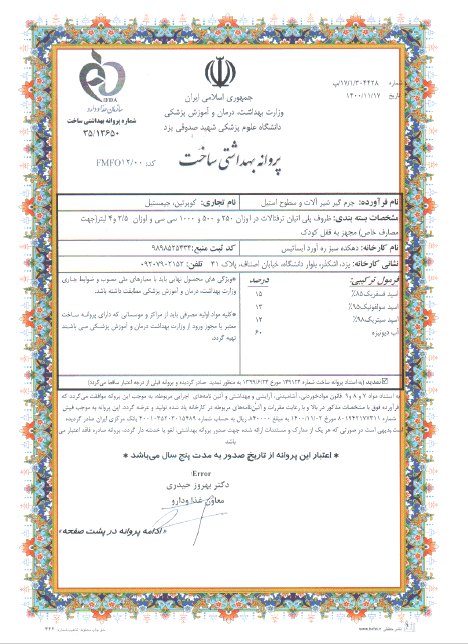 شماره ۱۷/۱/۳۰۴۴۲۸/پ
تاریخ ۱۴۰۰/۱۱/۱۷
IFDA
سازمان غذا و دارو
شماره پروانه بهداشتی ساخت
۳۵/۱۳۶۵۰
جمهوری اسلامی ایران
وزارت بهداشت، درمان و آموزش پزشکی
دانشگاه علوم پزشکی شهید صدوقی یزد
کد: FMFO۱۲/۰۰
پروانه بهداشتی ساخت
نام فرآورده: جرم گیر شیر آلات و سطوح استیل
نام تجاری: کوبرتین، جیمستیل
مشخصات بسته بندی: ظروف پلی اتیلن ترفتالات در اوزان ۲۵۰ و ۵۰۰ و ۱۰۰۰ سی سی و اوزان ۲/۵ و۴ لیتر(جهت
مصارف خاص) مجهز به قفل کودک
نام کارخانه: دهکده سبز ره آورد ایساتیس
کد ثبت منبع: ۹۸۹۸۵۲۵۴۳۴
نشانی کارخانه: یزد، اشکذر، بلوار دانشگاه، خیابان اصناف، پلاک ۴۱
تلفن: ۰۹۲۰۷۹۰۲۱۵۲
فرمول ترکیبی: درصد
اسید فسفریک۸۵٪ ۱۵
اسید سولفونیک۹۵٪ ۱۳
اسید سیتریک۹۸٪ ۱۲
آب دیونیزه ۶۰
*ویژگی های محصول نهایی باید با معیارهای ملی مصوب و ضوابط جاری
وزارت بهداشت، درمان و آموزش پزشکی مطابقت داشته باشد.
*کلیه مواد اولیه مصرفی باید از مراکز و موسساتی که دارای پروانه ساخت
معتبر یا مجوز ورود از وزارت بهداشت درمان و آموزش پزشکی می باشند
تهیه گردد.
تمدید (به استناد پروانه ساخت شماره ۱۴۹۱۲۴ مورخ ۱۳۹۹/۶/۲۴ به منظور تمدید صادر گردیده و پروانه قبلی از درجه اعتبار ساقط می‌گردد)
به استناد مواد ۷ و ۸ و ۹ قانون مواد‌خوردنی، آشامیدنی، آرایشی و بهداشتی و آئین نامه‌های اجرایی مربوطه به موجب این پروانه موافقت می‌گردد که
فرآورده فوق با مشخصات مذکور در بالا و با رعایت مقررات و آئین‌نامه‌های مربوطه در کارخانه یاد شده تولید و عرضه گردد. این پروانه به موجب فیش
مورخ ۱۴۰۰/۱۱/۰۲ به مبلغ ۸۴۰۰۰۰ ریال به حساب شماره بانک مرکزی ایران صادر گردیده
است بدیهی است در صورتی که هر یک از مدارک و مستندات ارائه شده جهت صدور پروانه بهداشتی، لغو یا خدشه دار گردد، پروانه صادره فاقد اعتبار می
باشد
* اعتبار این پروانه از تاریخ صدور به مدت پنج سال می‌باشد *
Error!
دکتر بهروز حیدری
معاون غذا ودارو
«ادامه پروانه در پشت صفحه»